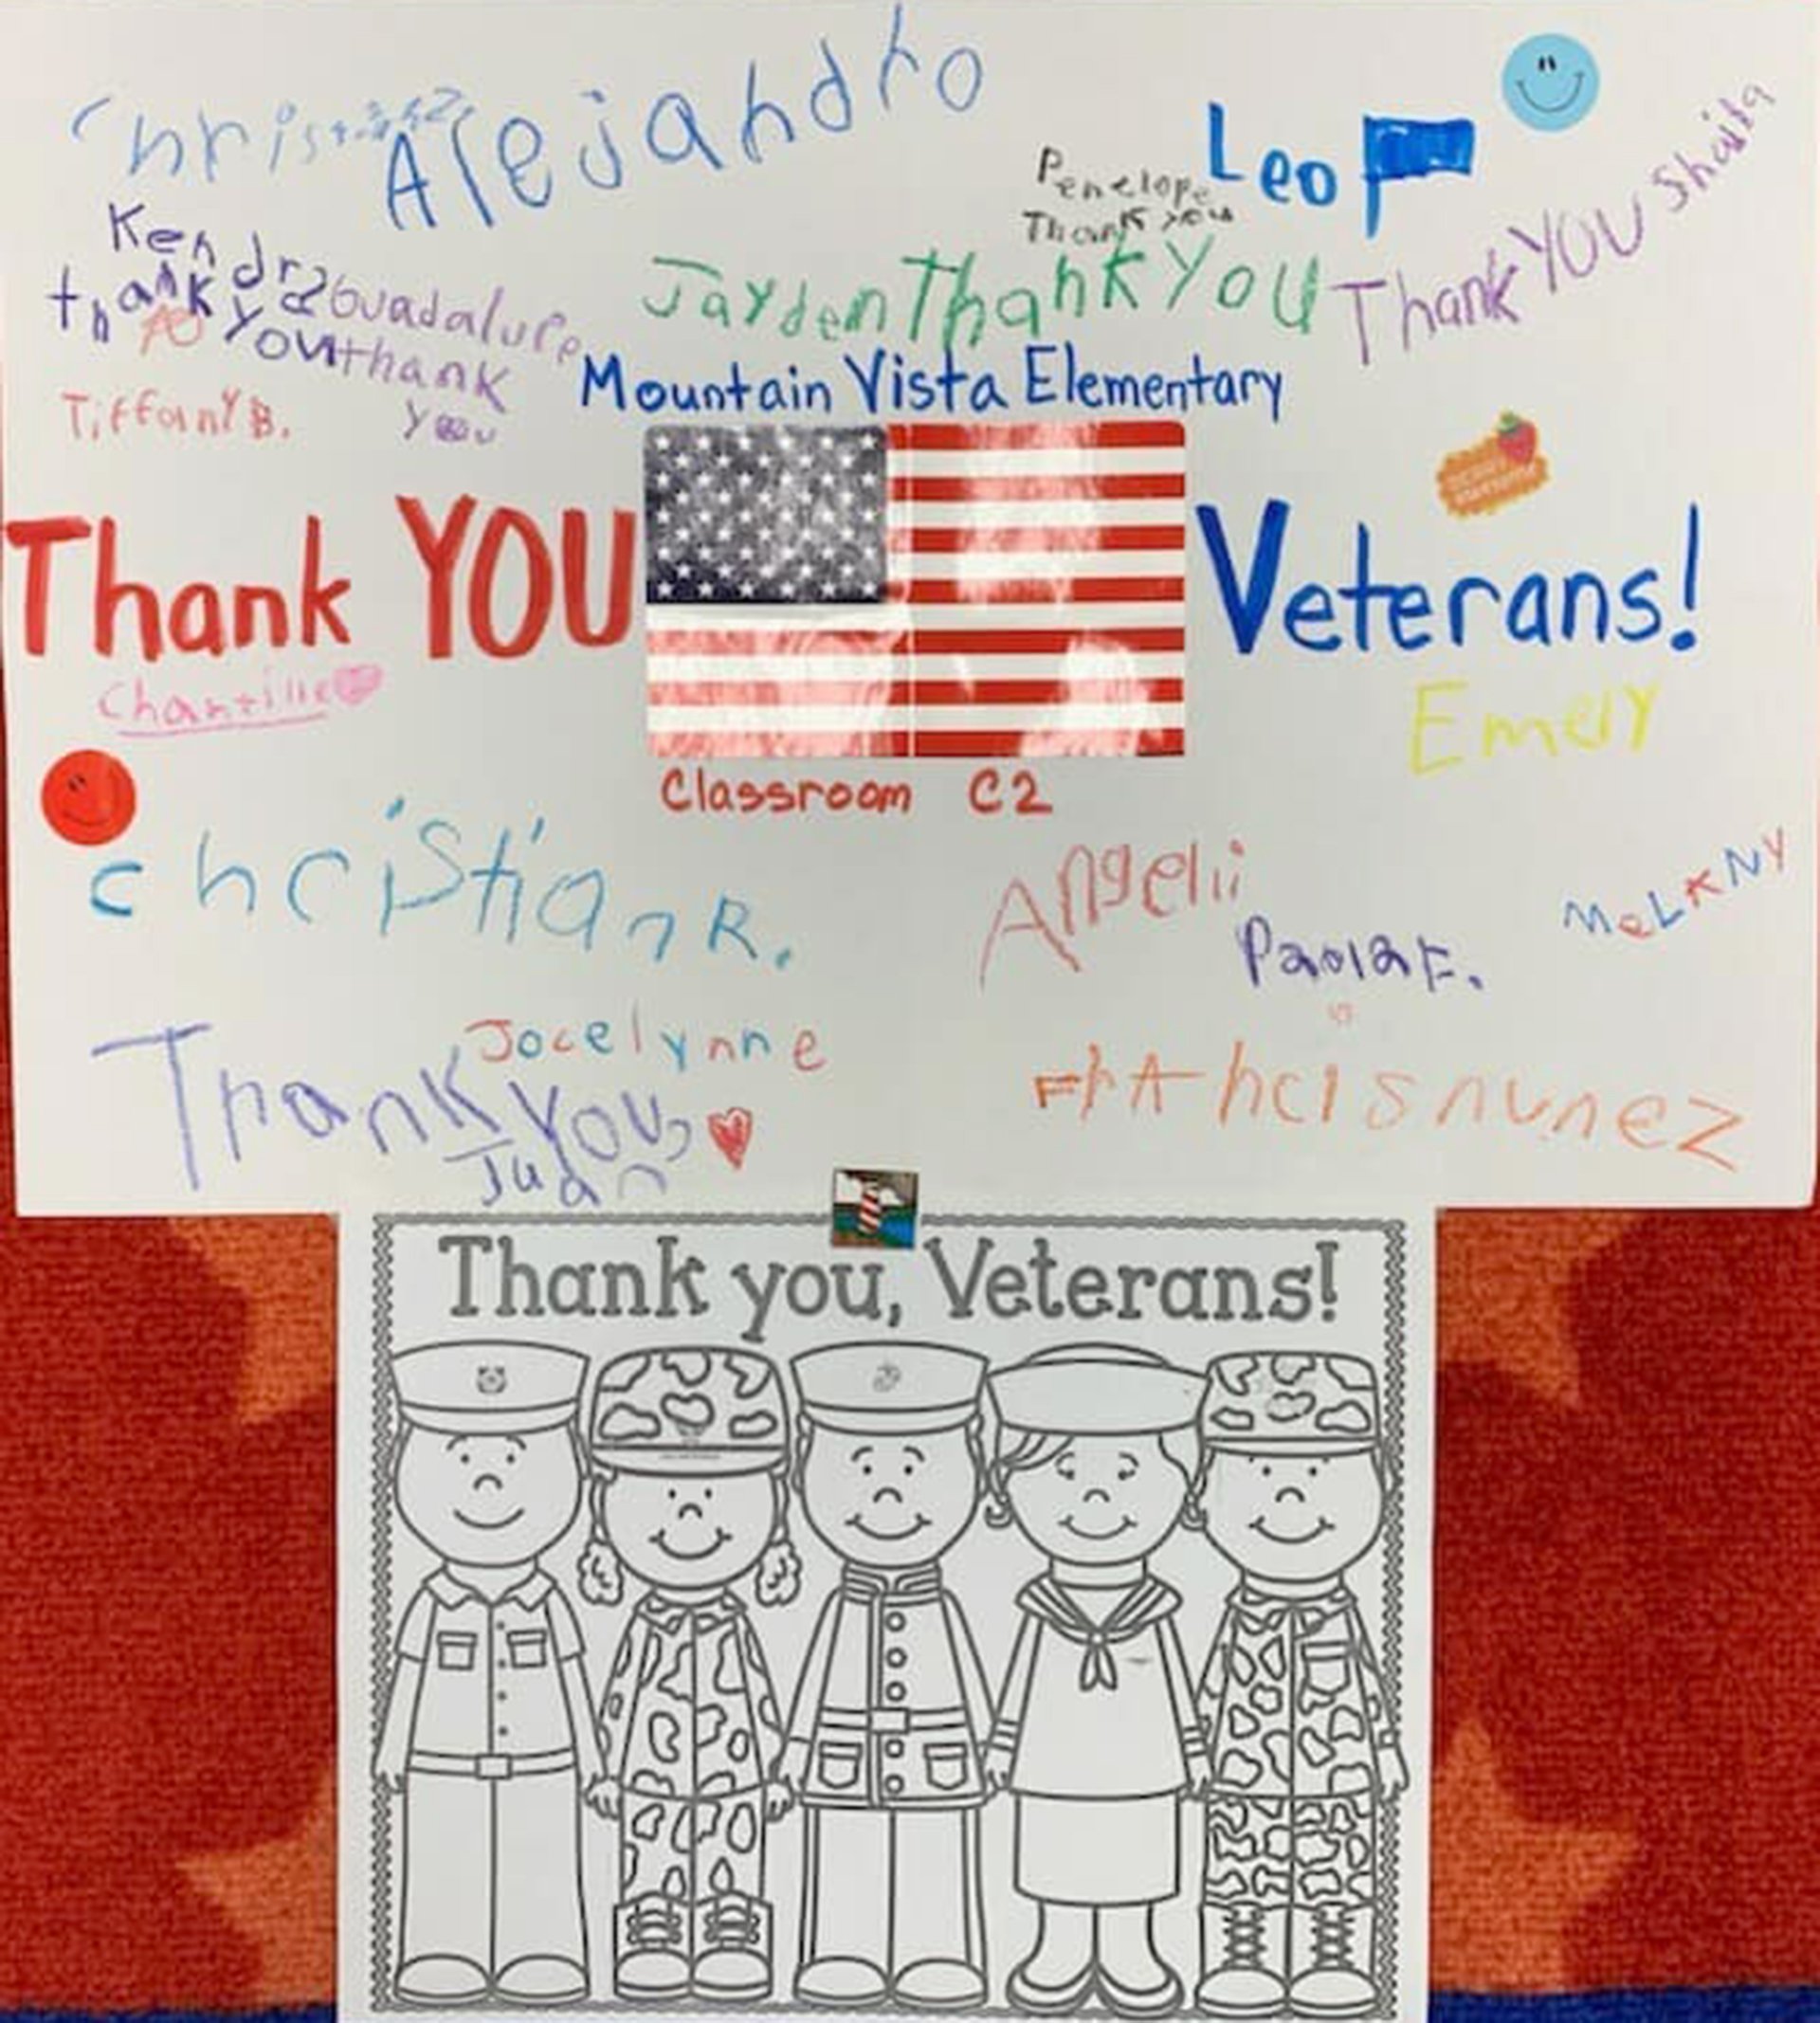 Alejandro
Leo
Penelope
Thank you
Kendra
thank you
Guadalupe
thank
you
Jayden Thank You
Thank YOU Shaila
Tiffany B.
Mountain Vista Elementary
Thank YOU
Veterans!
Chantille
Emely
Classroom C2
christian R.
Angelii
MeLANY
Paola F.
Jocelynne
Thank You,
Juan
FrAncis nunez
Thank you, Veterans!